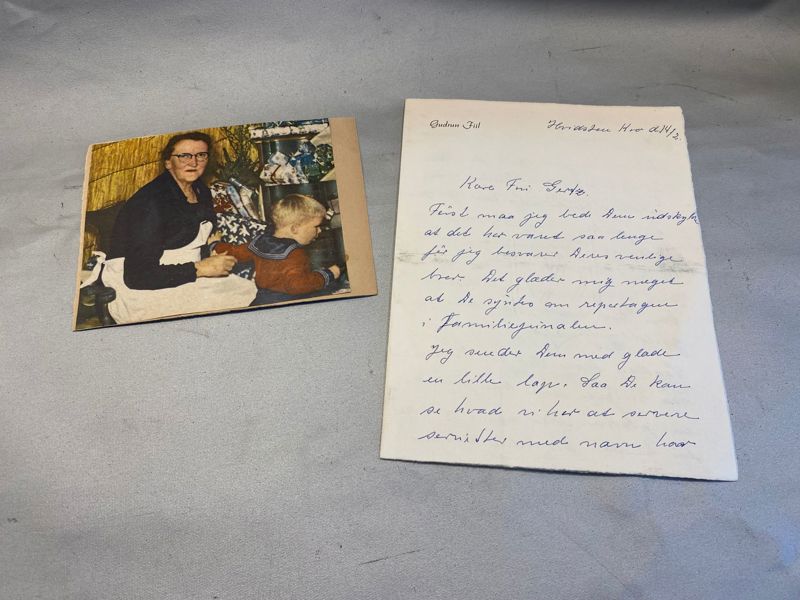 Gudrun Fiil
Hvidsten Kro d 14/2.
Kære Fru Gertz.
Først maa jeg bede Dem undskylde
at det har varet saa længe
før jeg besvarer Deres venlige
brev. Det glæder mig meget
at De syntes om reportagen
i Familiejournalen.
Jeg sender Dem med glæde
en lille lap. Saa De kan
se hvad vi har at servere
servietter med navn har